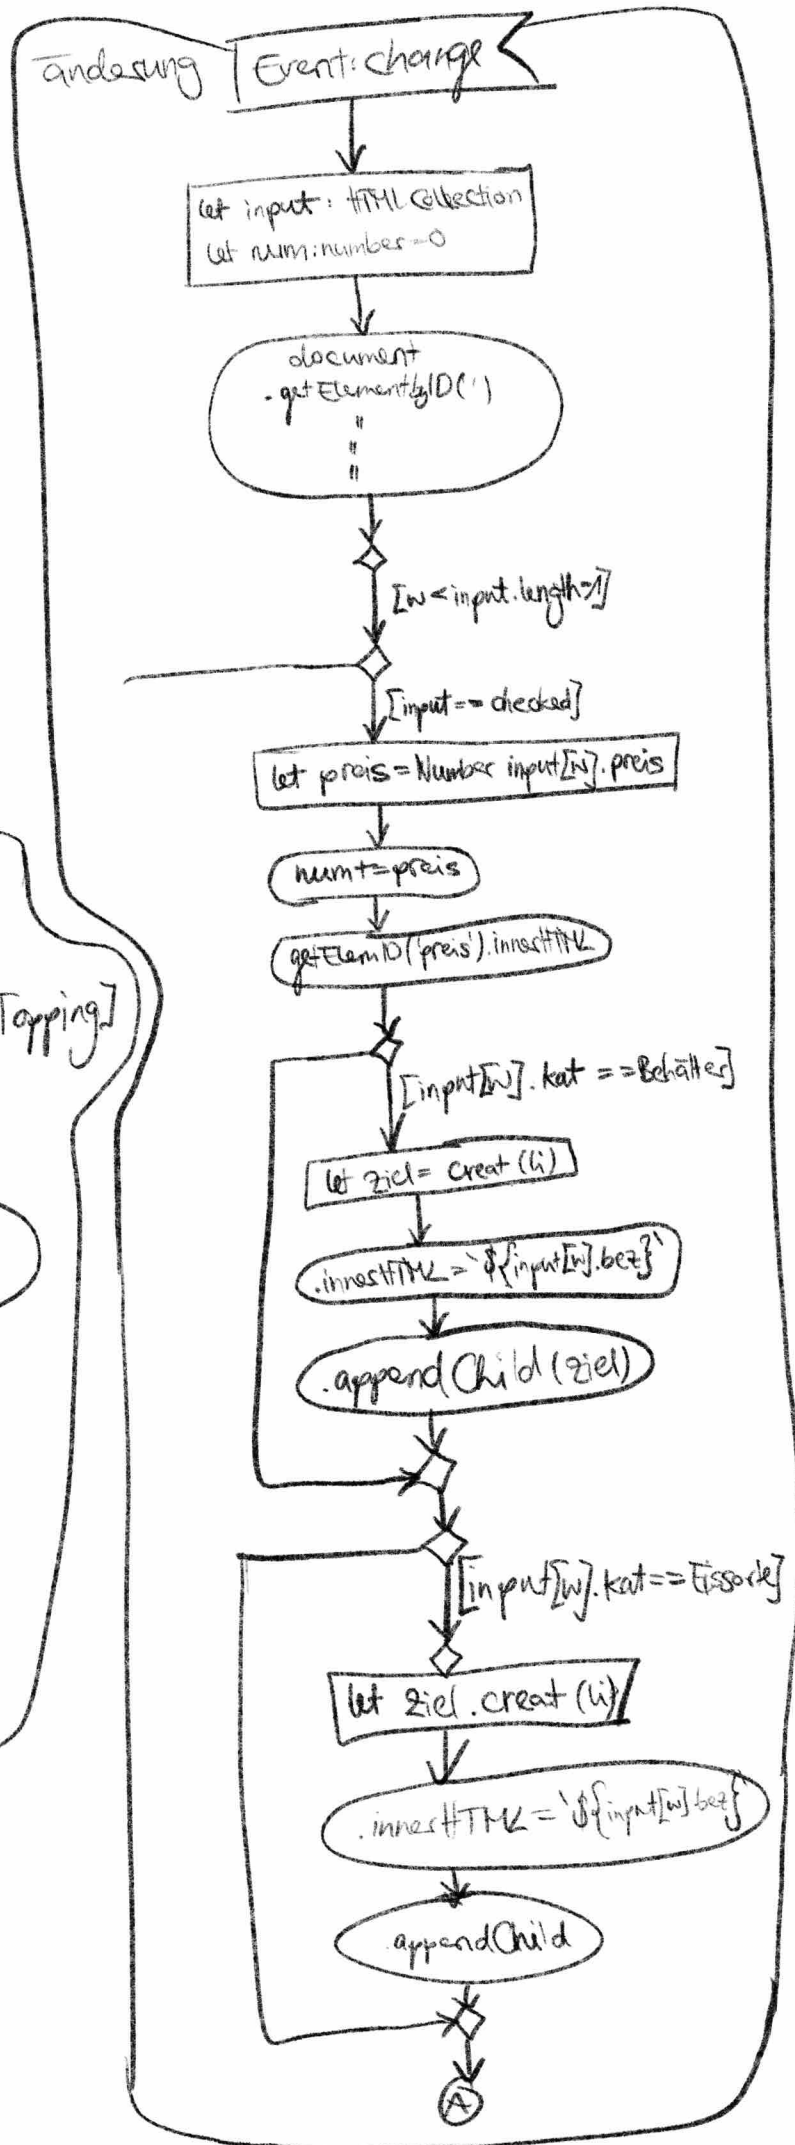 änderung
Event: change
let input: HTML Collection
let num: number=0
document
.getElementbyID(')
"
"
"
[w<input.length=1]
[input== checked]
let preis=Number input[w].preis
num+=preis
getElemID('preis').innerHTML
Topping]
[input[w].kat ==Behälter]
let ziel= creat (li)
.innerHTML=`${input[w].bez}`
.appendChild (ziel)
[input[w].kat==Eissorte]
let ziel.creat (li)
.innerHTML=`${input[w].bez}`
.appendChild
A